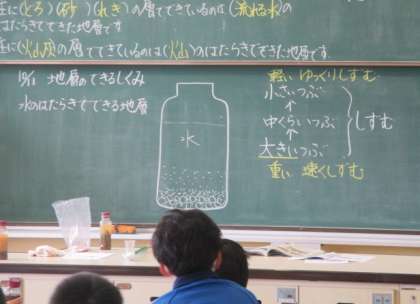 主に(どろ)(砂)(れき)の層でできているのは(流れる水)の
はたらきでできた地層です
主に(火山灰)の層でできているのは(火山)のはたらきでできた地層です
10/1 地層のできるしくみ
水のはたらきでできる地層
水
軽い ゆっくりしずむ
小さいつぶ
↑
中くらいつぶ
↑
大きいつぶ
しずむ
重い 速くしずむ